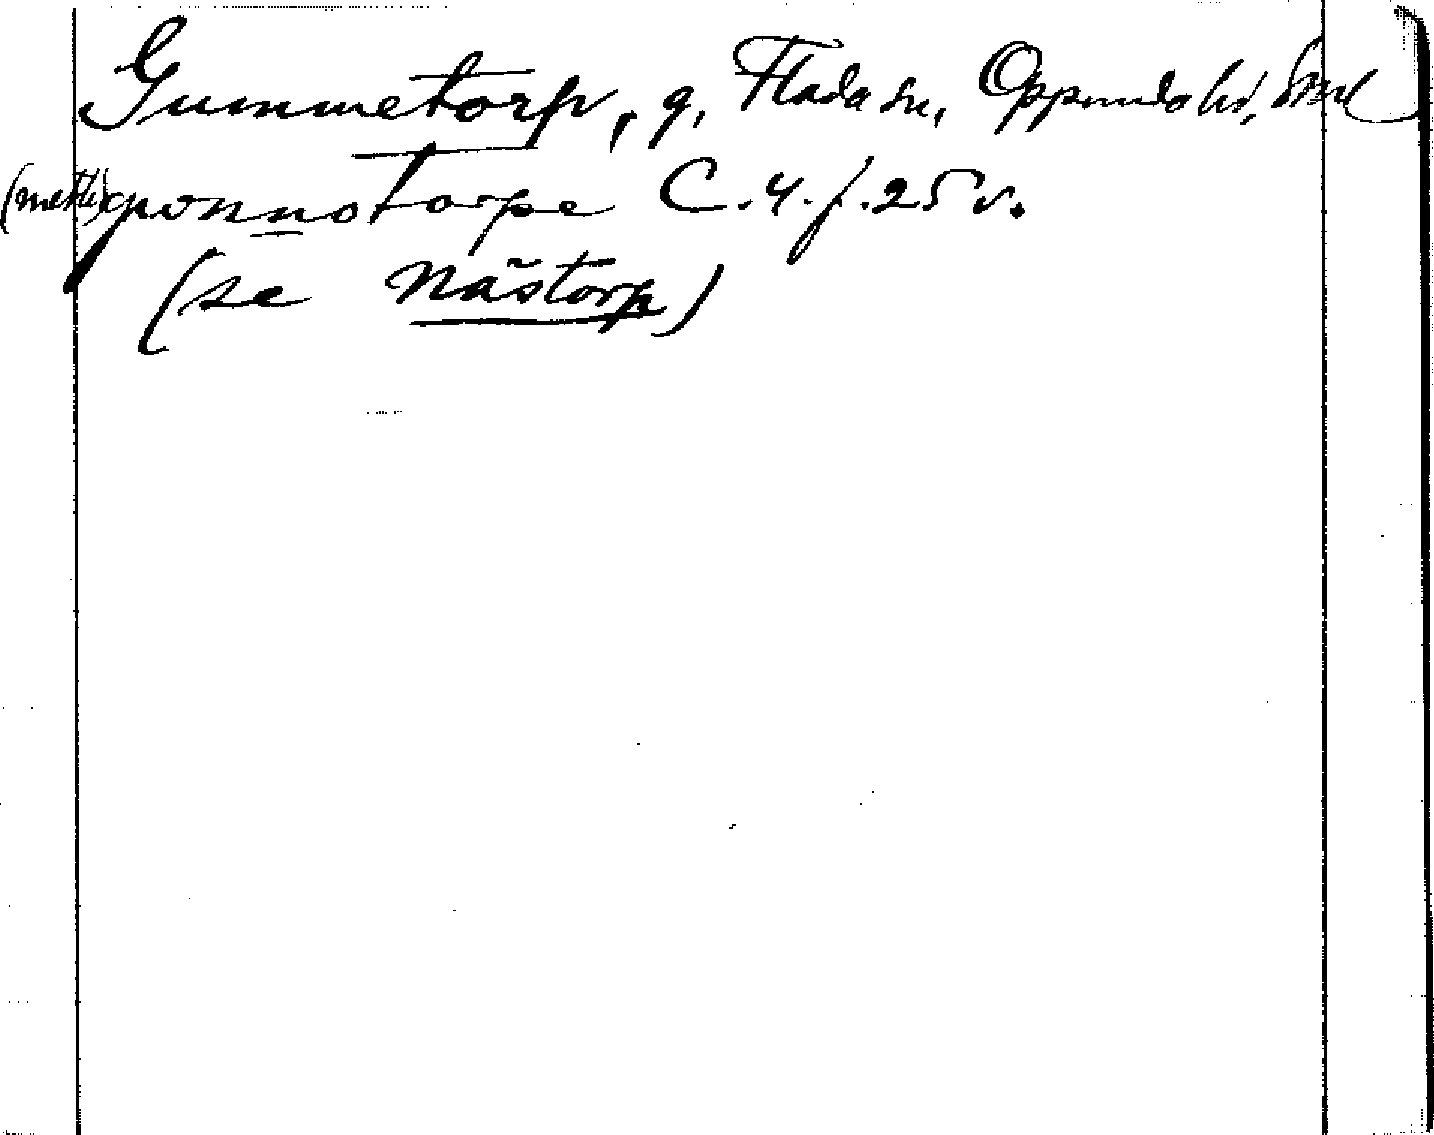 Gummetorp, g, Flada sn, Oppunda hd, Sml
gonnotorpe C. 4. f. 25 v.
(se Nästorp)